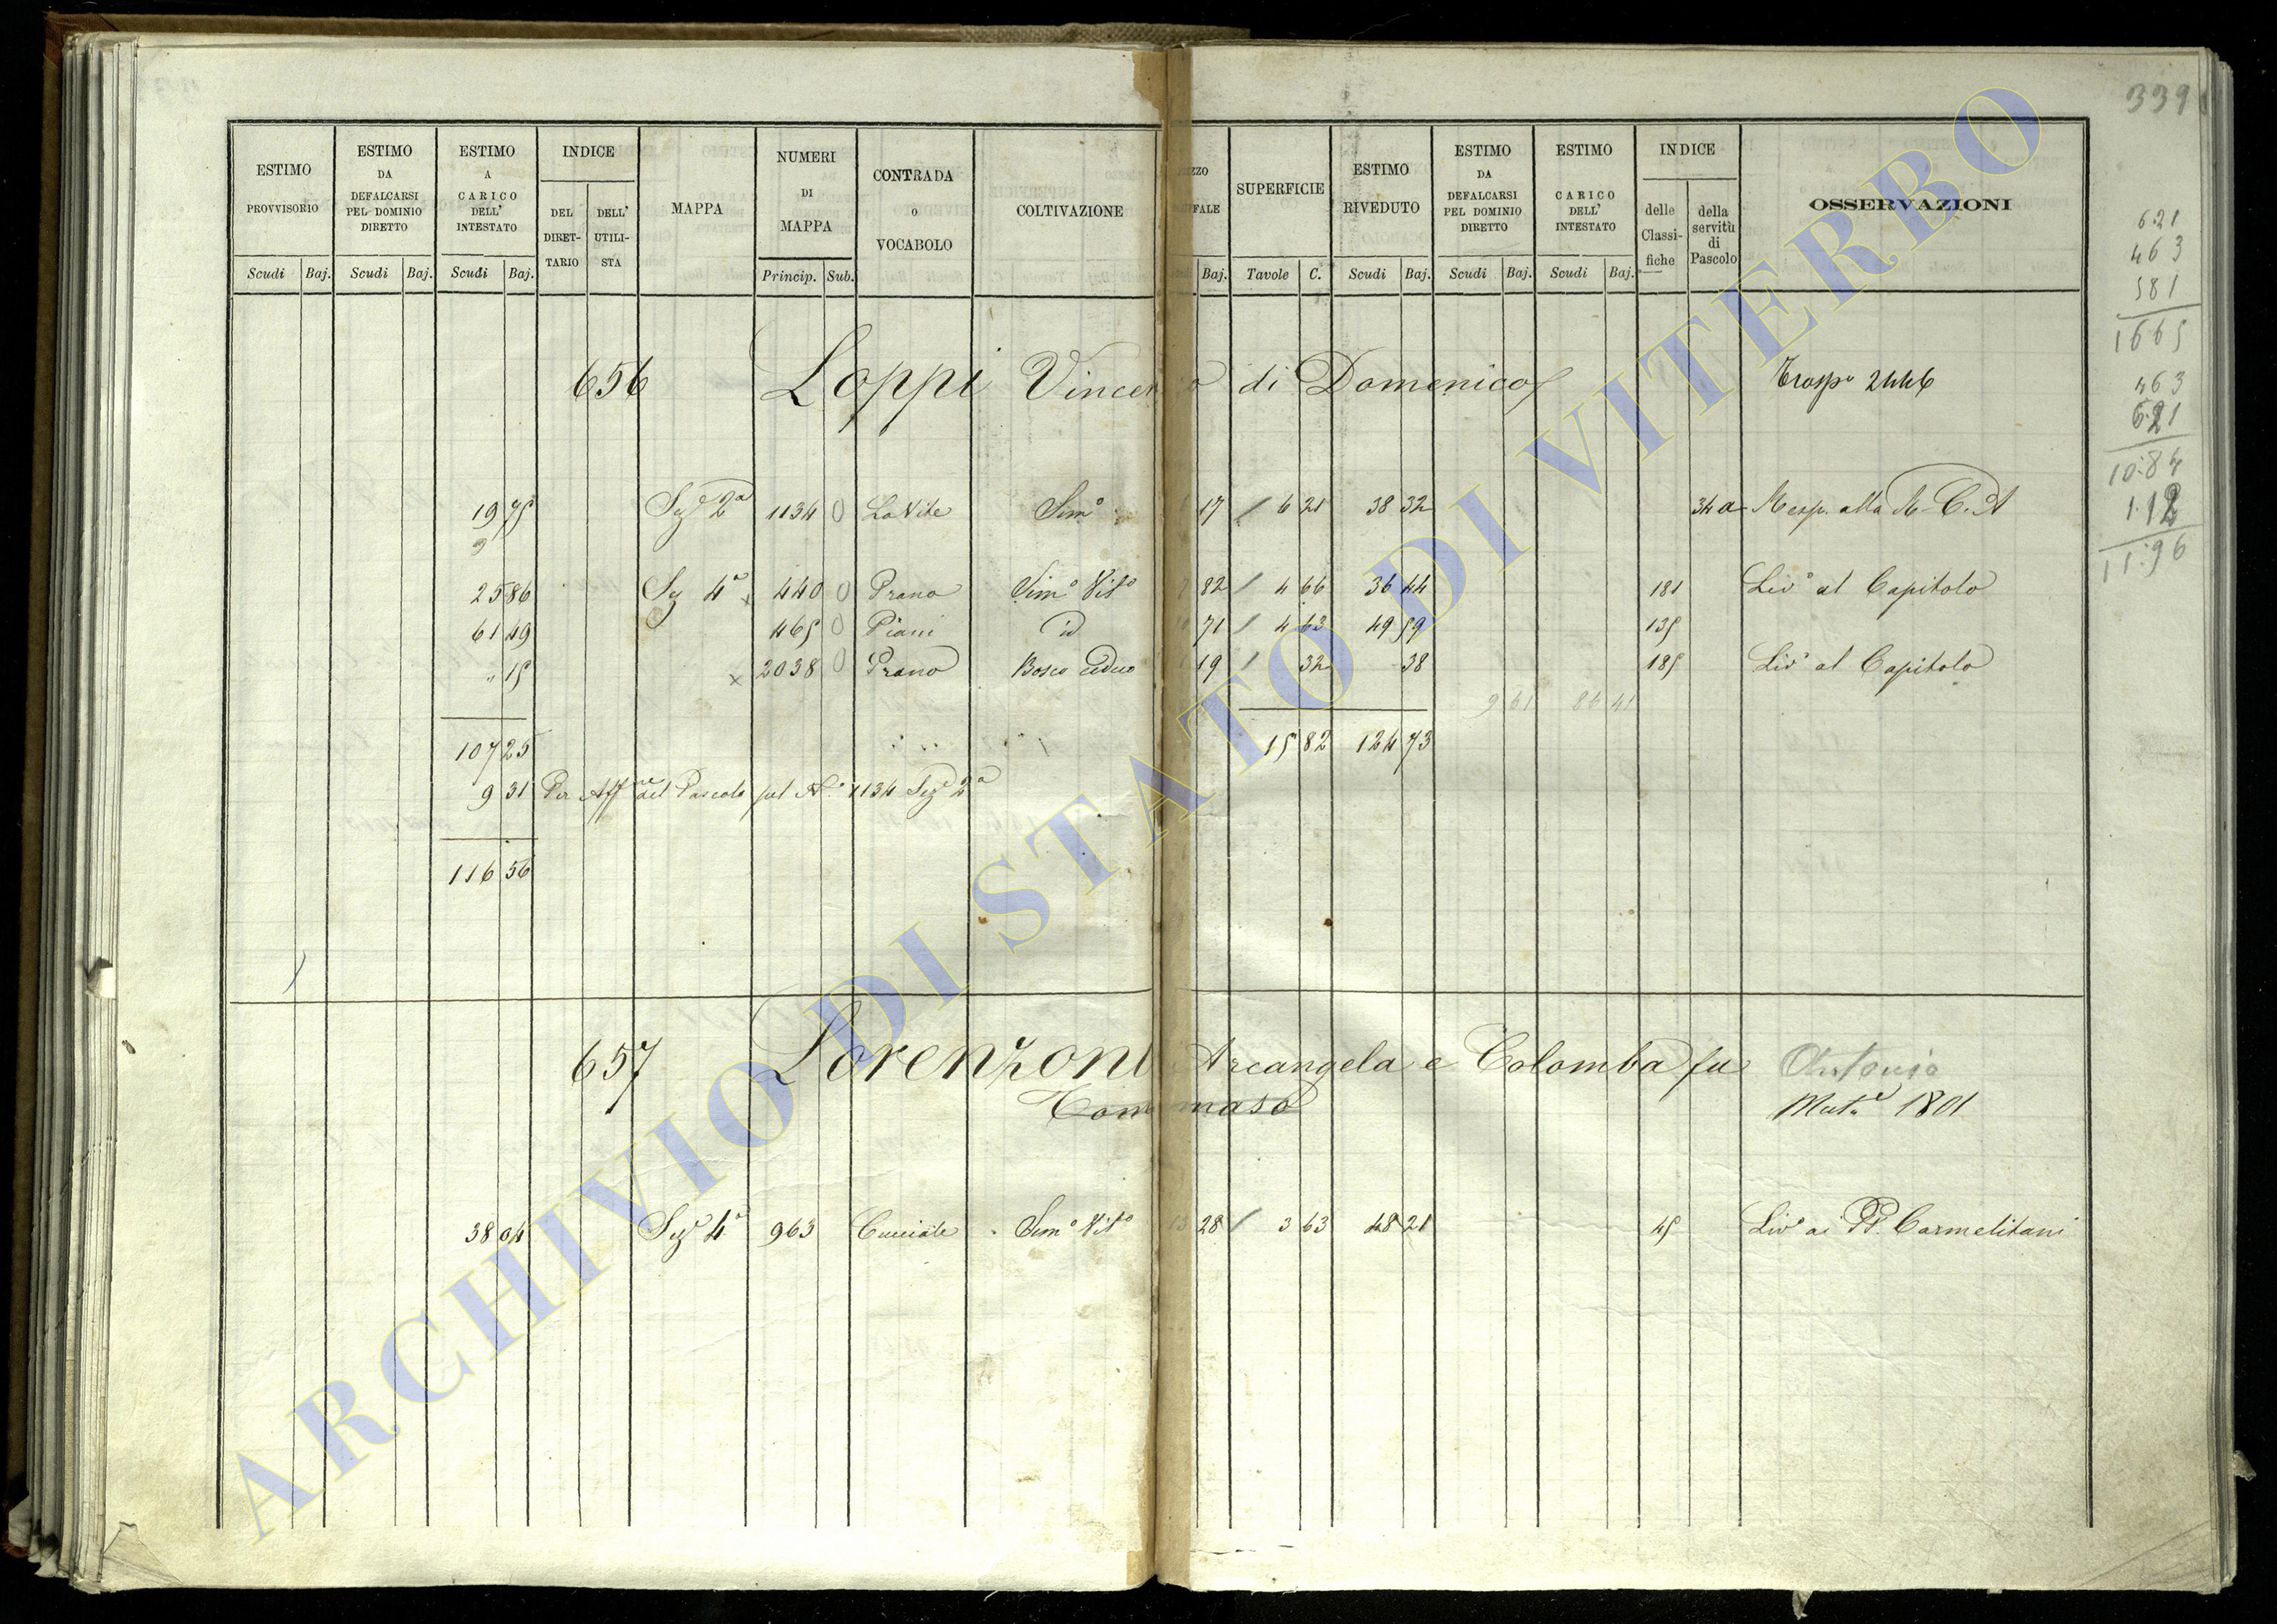 339
ESTIMO PROVVISORIO Scudi Baj.
ESTIMO DA DEFALCARSI PEL DOMINIO DIRETTO Scudi Baj.
ESTIMO A CARICO DELL' INTESTATO Scudi Baj.
INDICE DEL DIRET-TARIO DELL' UTILI-STA
MAPPA
NUMERI DI MAPPA Princip. Sub.
CONTRADA O VOCABOLO
COLTIVAZIONE
Baj.
SUPERFICIE Tavole C.
ESTIMO RIVEDUTO Scudi Baj.
ESTIMO DA DEFALCARSI PEL DOMINIO DIRETTO Scudi Baj.
ESTIMO CARICO DELL' INTESTATO Scudi Baj.
INDICE delle Classi-fiche della servitù di Pascolo
OSSERVAZIONI
656 Loppi Vincenzo di Domenico Trasp 2446
19 75 Sez 2a 1134 0 La Vite Semo 17 6 21 38 32 34 a Resp. alla R. C. A
25 86 Sez 4a 440 0 Prano Semo Vito 82 4 66 36 44 181 Livo al Capitolo
61 49 465 0 Piani id 71 4 63 49 59 135
" 15 2038 0 Prano Bosco Ceduo 19 32 38 185 Livo al Capitolo
9 61 86 41
107 25 15 82 124 73
9 31 Per Affne del Pascolo sul No 1134 Sez 2a
116 56
657 Lorenzoni Arcangela e Colomba fu Antonio
Tommaso Mut. 1801
38 04 Sez 4a 963 Cucciale Semo Vito 13 28 3 63 48 21 45 Livo ai PP. Carmelitani
6.21
4 63
5 81
16 65
4 63
6.21
10.84
1.12
11.96
ARCHIVIO DI STATO DI VITERBO